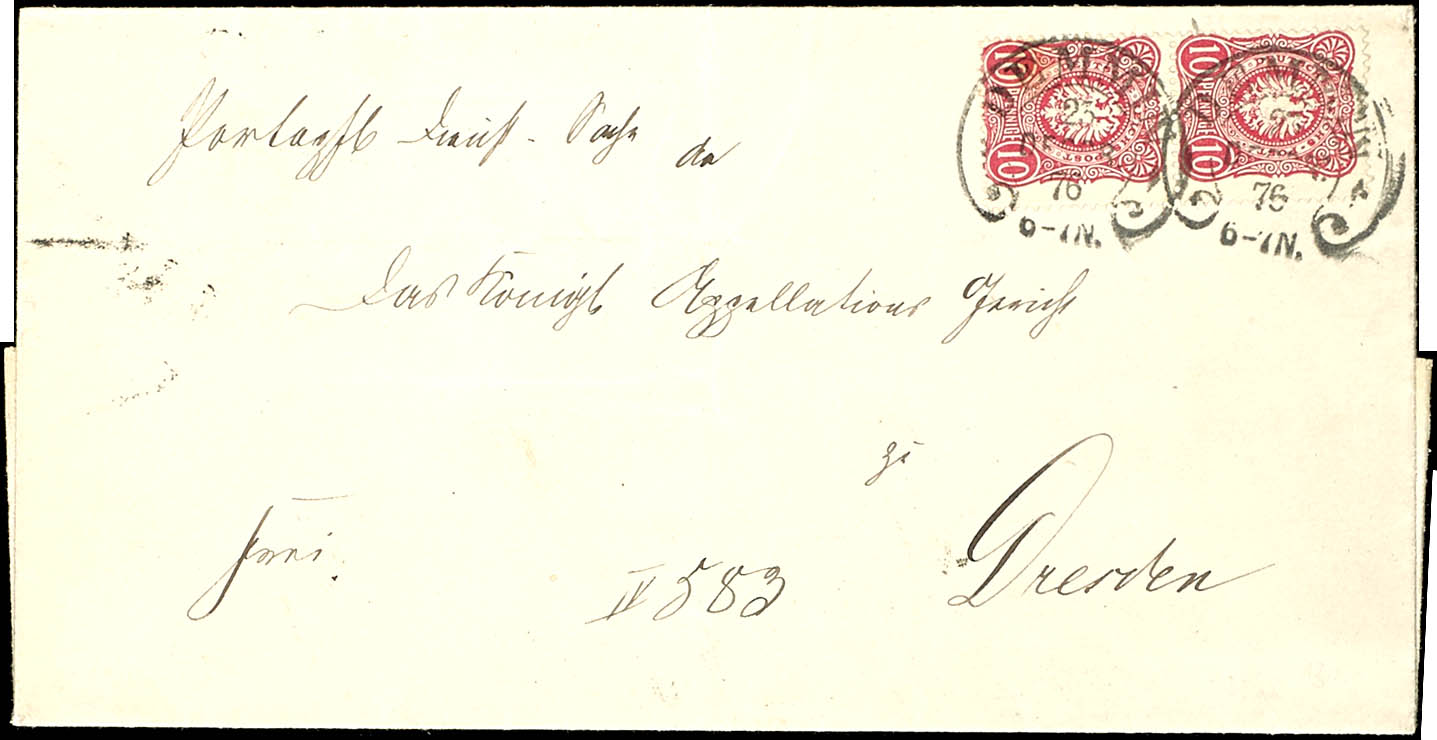 10 PFENNIGE 10 DEUTSCHE REICHS-POST
10 PFENNIGE 10 DEUTSCHE REICHS-POST
76
6-7N.
76
6-7N.
Portopfl Dienst-Sache
an
Das Königl Appellations Gericht
zu
Dresden
frei.
IV 583